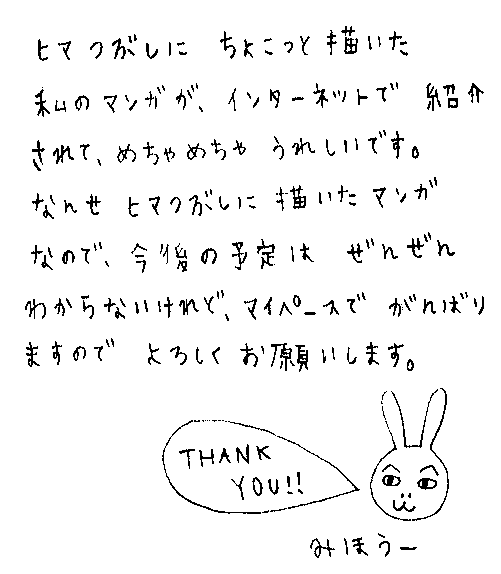 ヒマつぶしに ちょこっと描いた
私のマンガが、インターネットで 紹介
されて、めちゃめちゃ うれしいです。
なんせ ヒマつぶしに描いたマンガ
なので、今後の予定は ぜんぜん
わからないけれど、マイペースで がんばり
ますので よろしく お願いします。
THANK
YOU!!
みほうー